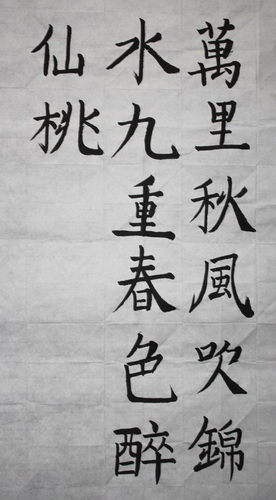 萬里秋風吹錦
水九重春色醉
仙桃